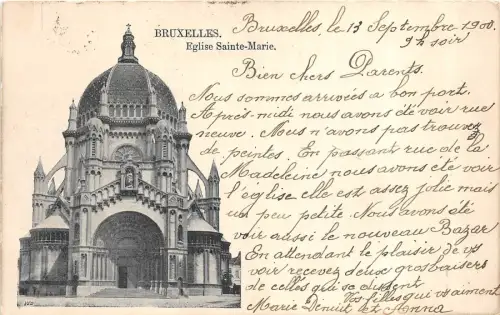 BRUXELLES.
Eglise Sainte-Marie.
Bruxelles, le 13 Septembre 1900.
9h soir
Bien chers Parents.
Nous sommes arrivées a bon port.
Après-midi nous avons été voir rue
neuve. Nous n'avons pas trouvez
de peintes. En passant rue de la
Madeleine nous avons été voir
l'église elle est assez jolie mais
un peu petite. Nous avons été
voir aussi le nouveau Bazar
En attendant le plaisir de vs
voir recevez deux gros baisers
de celles qui se disent
Vos filles qui vs aiment
Marie et Anna